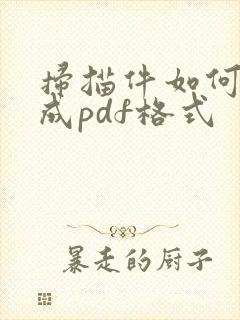 掃描件如何
成pdf格式
暴走的厨子